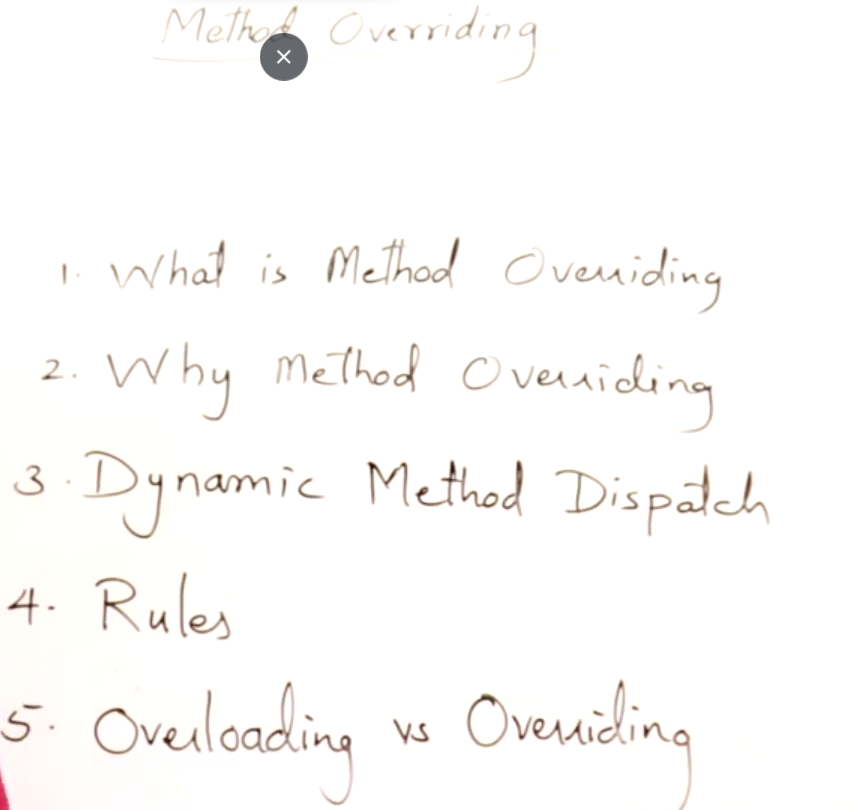 Method Overriding
1. What is Method Overriding
2. Why Method Overriding
3. Dynamic Method Dispatch
4. Rules
5. Overloading vs Overriding